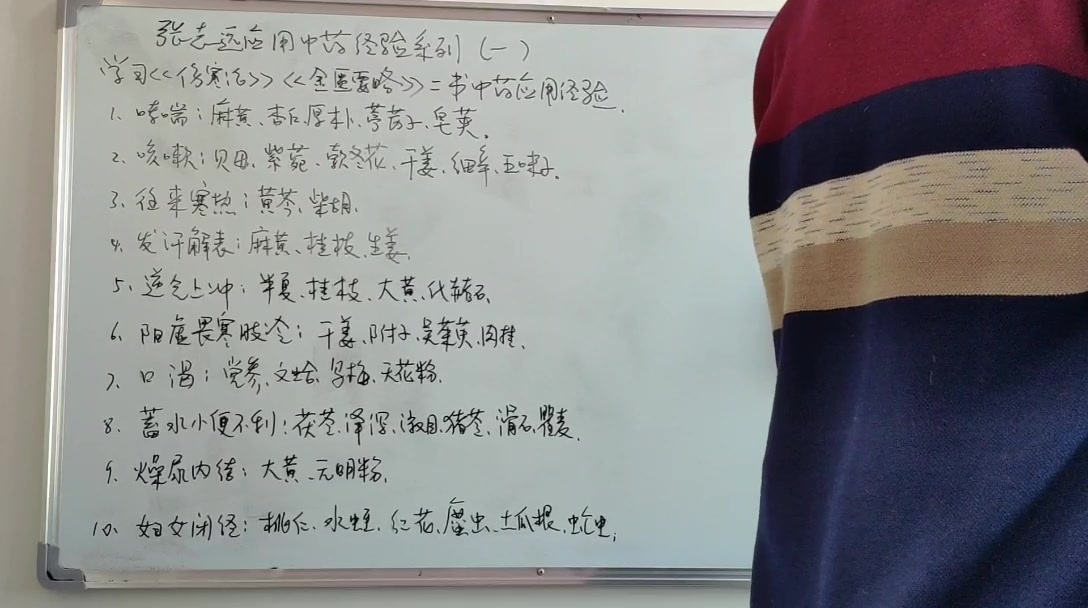 张志远应用中药经验系列(一)
学习<<伤寒论>><<金匮要略>>二书中药应用经验.
1、哮喘:麻黄、杏仁、厚朴、葶苈子、皂荚。
2、咳嗽:贝母、紫菀、款冬花、干姜、细辛、五味子.
3、往来寒热:黄芩、柴胡.
4、发汗解表:麻黄、桂枝、生姜.
5、逆气上冲:半夏、桂枝、大黄、代赭石.
6、阳虚畏寒肢冷:干姜、附子、吴茱萸、肉桂.
7、口渴:党参、文蛤、乌梅、天花粉.
8、蓄水小便不利:茯苓、泽泻、椒目、猪苓、滑石、瞿麦.
9、燥屎内结:大黄、元明粉.
10、妇女闭经:桃仁、水蛭、红花、䗪虫、土瓜根、虻虫;